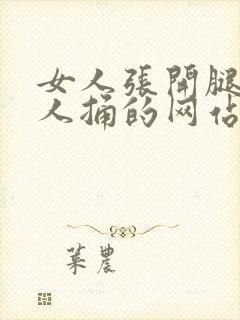 女人張開腿
人捅的网佔
葉農